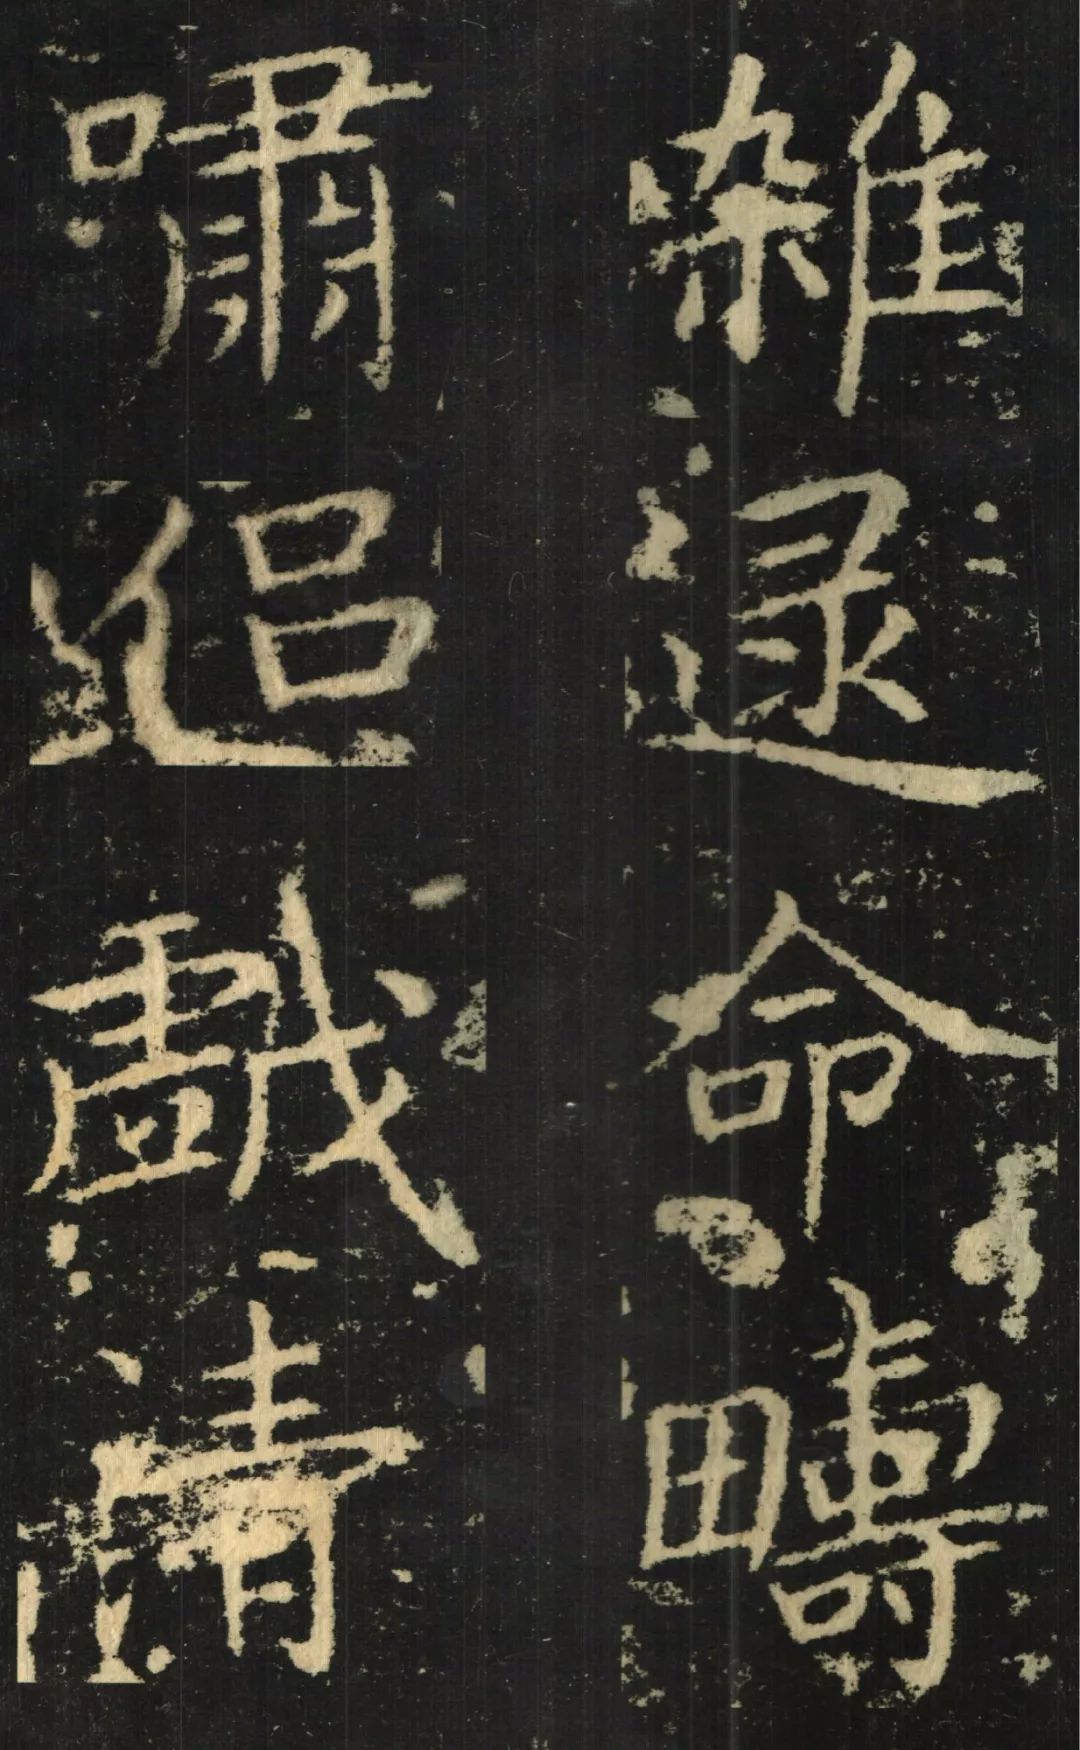 雜逯命疇
嘯侶戲清